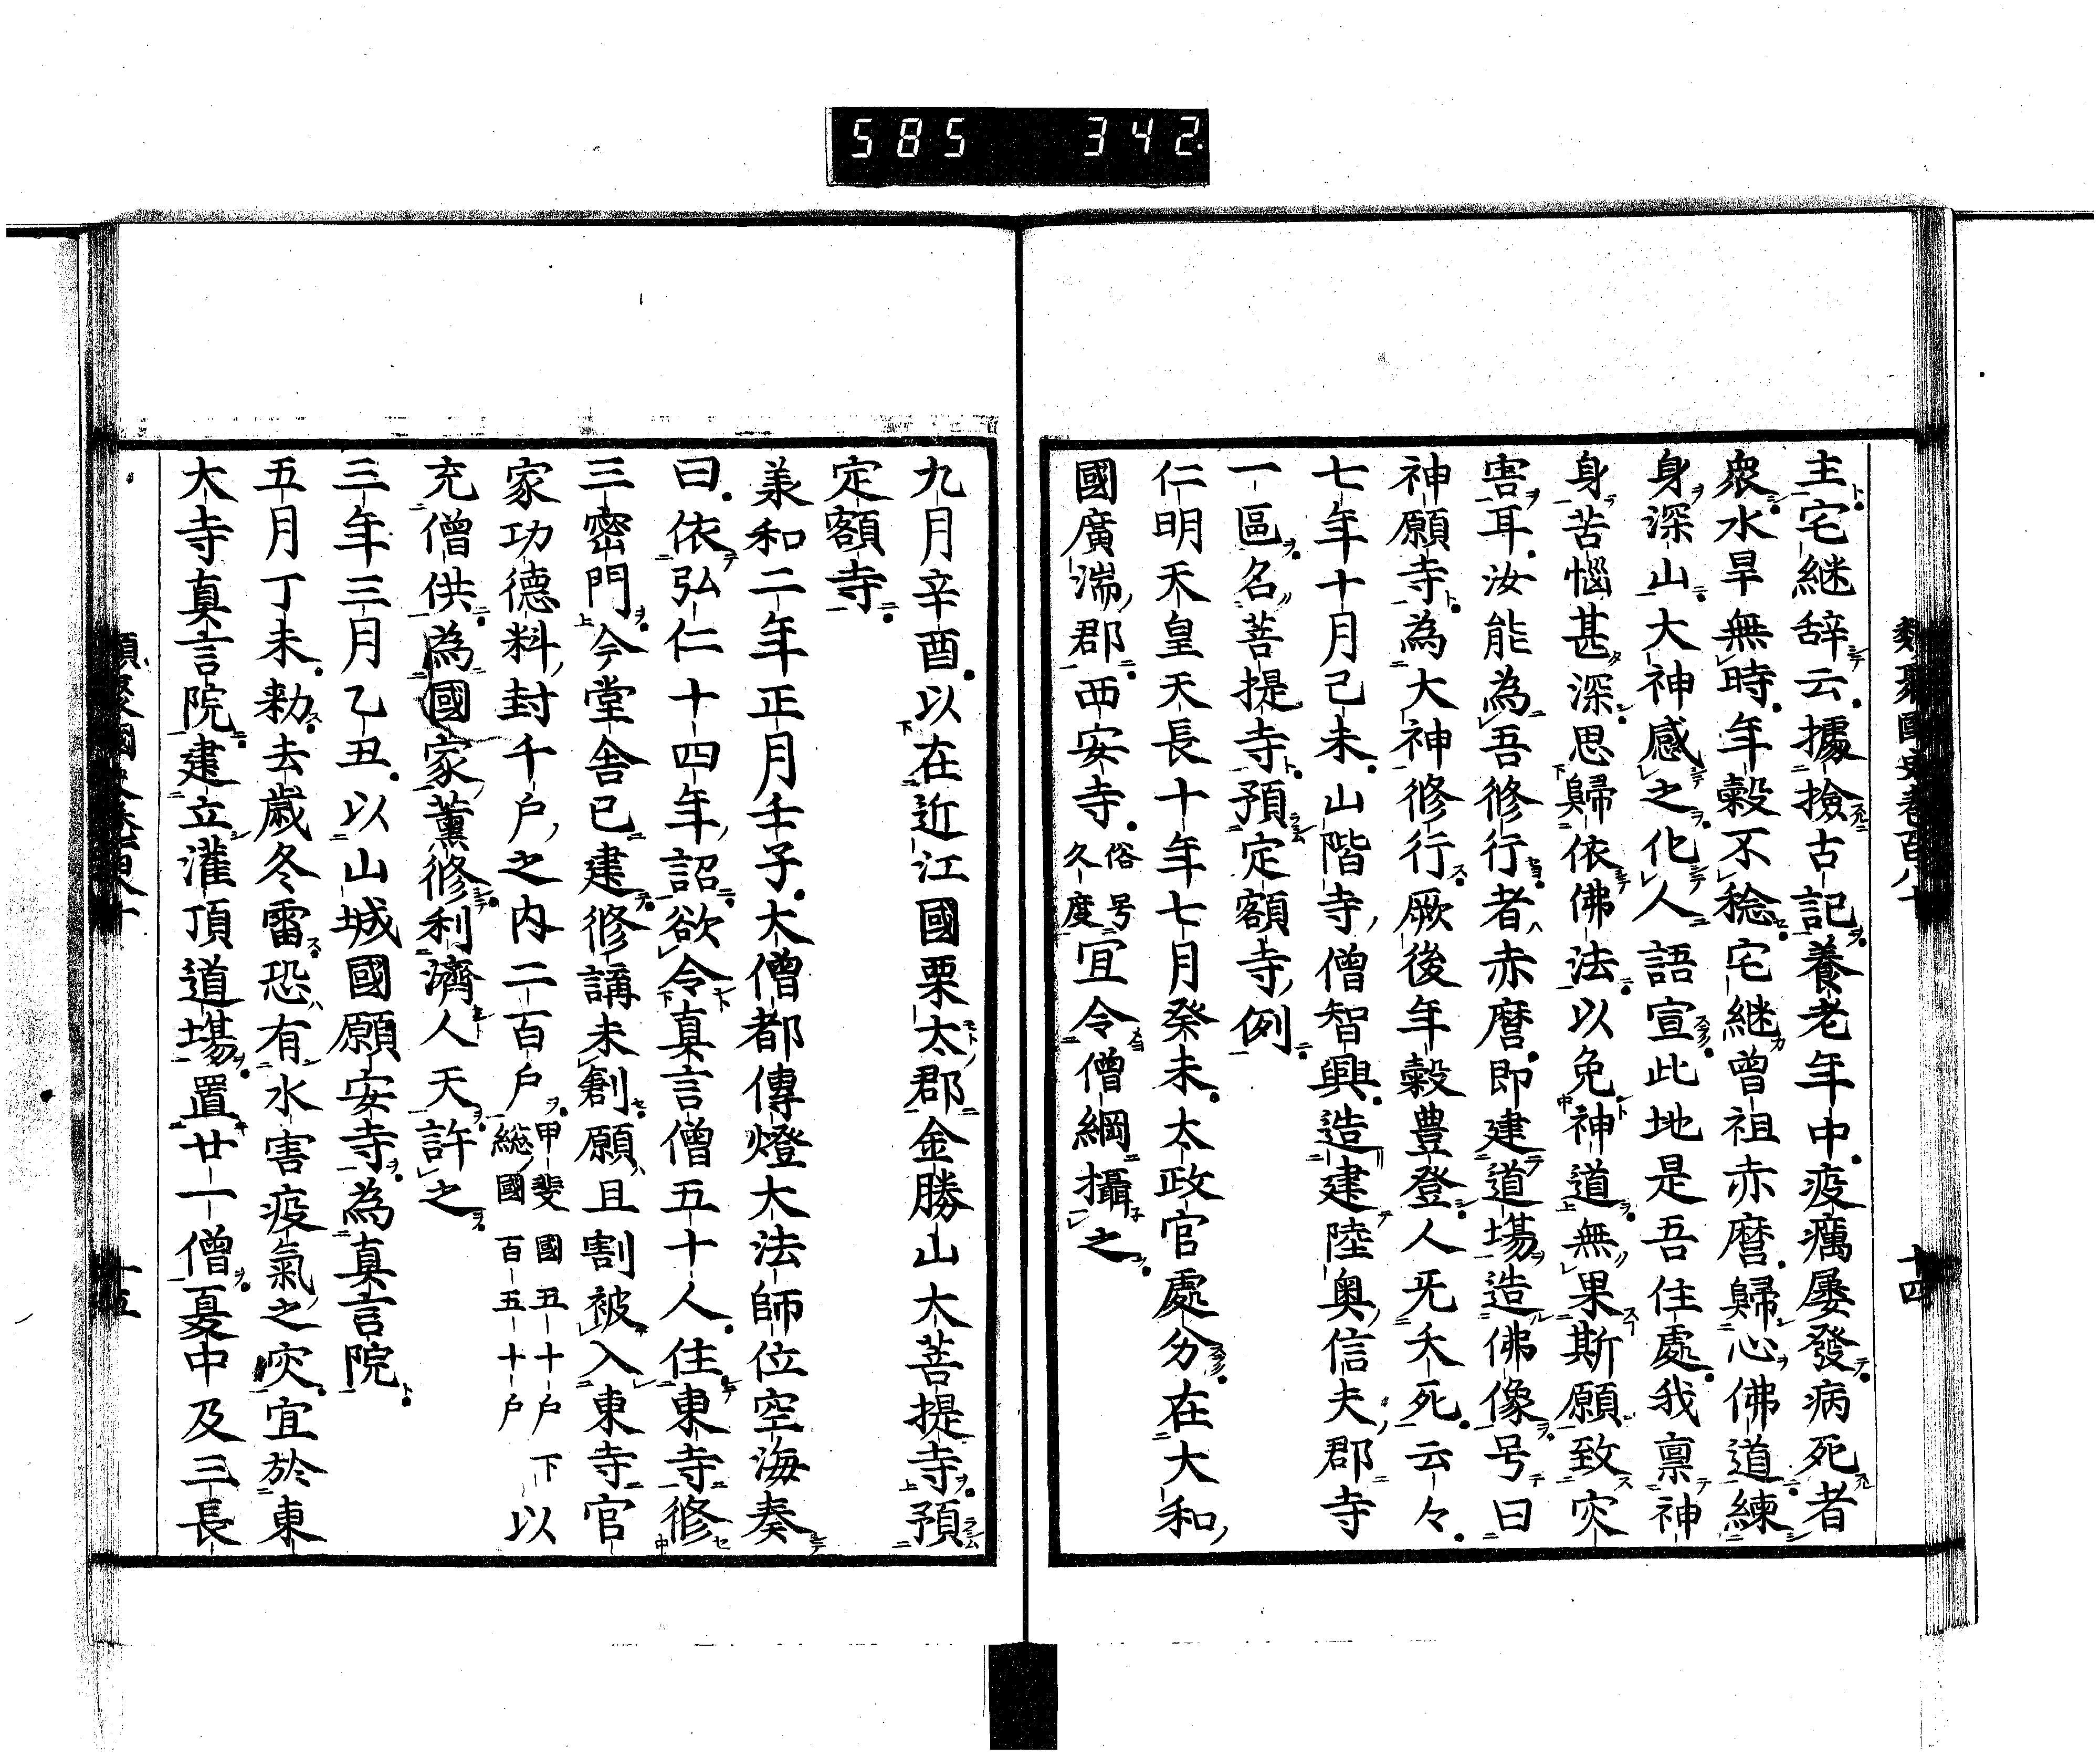 585 342
類聚國史卷百八十 十四
主宅継辞云據撿古記養老年中疫癘屡發病死者
衆水旱無時年穀不稔宅継曾祖赤麿歸心佛道練
身深山大神感之化人語宣此地是吾住處我禀神
身苦惱甚深思歸依佛法以免神道無果斯願致灾
害耳汝能為吾修行者赤麿即建道場造佛像号曰
神願寺為大神修行厥後年穀豊登人无夭死云々
七年十月己未山階寺僧智興造建陸奥信夫郡寺
一區名菩提寺預定額寺例
仁明天皇天長十年七月癸未太政官處分在大和
國廣湍郡西安寺俗号久度宜令僧綱攝之
九月辛酉以在近江國栗太郡金勝山大菩提寺預
定額寺
羕和二年正月壬子大僧都傳燈大法師位空海奏
曰依弘仁十四年詔欲令真言僧五十人住東寺修
三密門今堂舎已建修講未創願且割被入東寺官
家功德料封千戸之内二百戸甲斐國五十戸下総國百五十戸以
充僧供為國家薫修利濟人天許之
三年三月乙丑以山城國願安寺為真言院
五月丁未勅去歳冬雷恐有水害疫氣之灾宜於東
大寺真言院建立灌頂道場置廿一僧夏中及三長
類聚國史卷百八十 十五